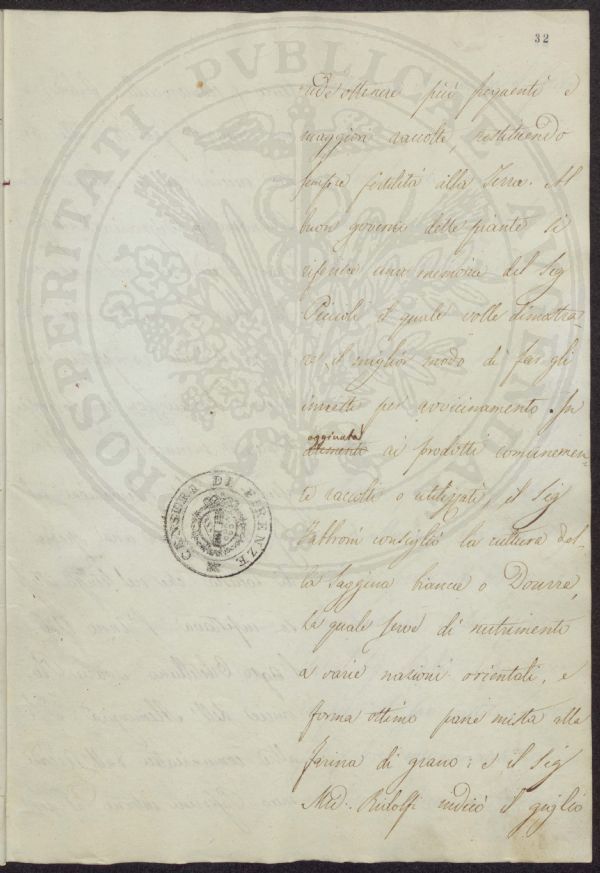 32
rede ottenere più frequenti e
maggiori raccolte, restituendo
sempre fertilità alla Terra. Al
buon governo delle piante si
riferisce una memoria del Sig
Piccioli il quale volle dimostra-
re il miglior modo di far gli
innesti per avvicinamento. In
aggiunta
ai prodotti comunemen-
te raccolti o utilizzati, il Sig
Fabbroni consigliò la cultura del-
la saggina bianca o Dourra,
la quale serve di nutrimento
a varie nazioni orientali, e
forma ottimo pane mista alla
farina di grano: e il Sig
Ridolfi indicò il giuglio
CENSURA DI FIRENZE
PROSPERITATI PUBLICAE AUGENDAE